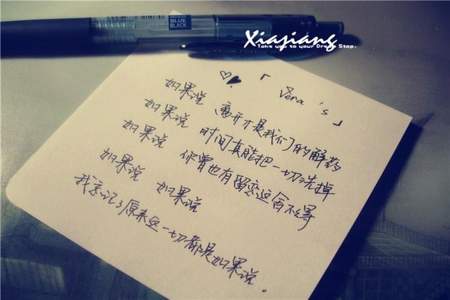 BLUE BLACK
Xiajiang
Take you to your Drug Stop.
「 Vena's 」
如果说 离开才是我们的解药
如果说 时间真能把一切洗掉
如果说 你曾也有留恋这舍不得
如果说 如果说
我忘记了原来这一切都是如果说。